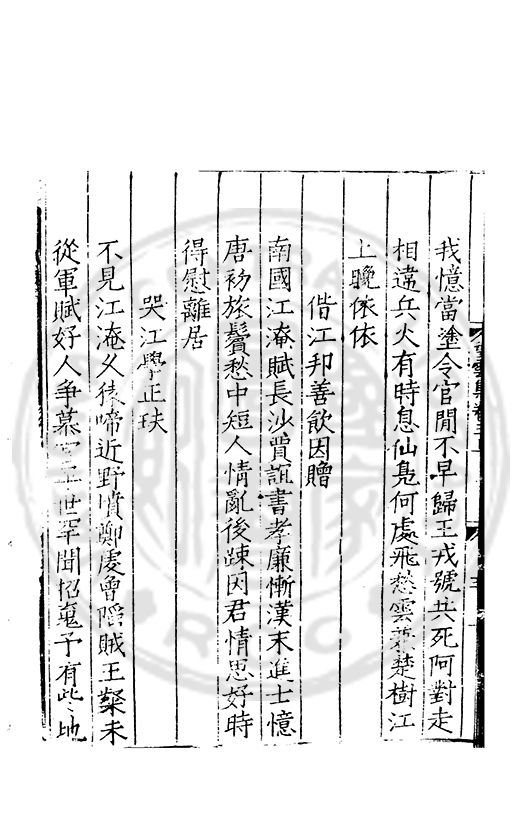 我憶當塗令官閒不早歸王戎號共死阿對走
相違兵火有時息仙鳧何處飛愁雲兼楚樹江
上晚依依
偕江邦善飲因贈
南國江淹賦長沙賈誼書孝廉慚漢末進士憶
唐初旅鬢愁中短人情亂後踈因君情思好時
得慰離居
哭江學正玞
不見江淹久猿啼近野墳鄭虔曾陷賊王粲未
從軍賦好人爭慕官世罕聞招䰟予有些地